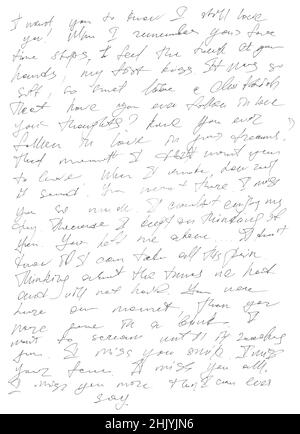 I want you to know I still love
you! When I remember your love
time stops, I feel the touch of your
hands, my first kiss. It was so
soft, so
that have you ever fallen in love
your thoughts? have you ever
fallen in love in your dreams.
that moment I want your
to When I woke,
it You weren't there I miss
you so much. I couldn't enjoy my
day because I kept on thinking of
you. You left me alone... I don't
know if I can take all this pain
thinking about the times we had
and will not have. You were
here one moment, then you
were gone in a blink. I
want to scream until
you. I miss you smile. I miss
your face. I miss you all.
I miss you more than I can ever
say.
alamy
Image ID: 2HJYJN6
www.alamy.com